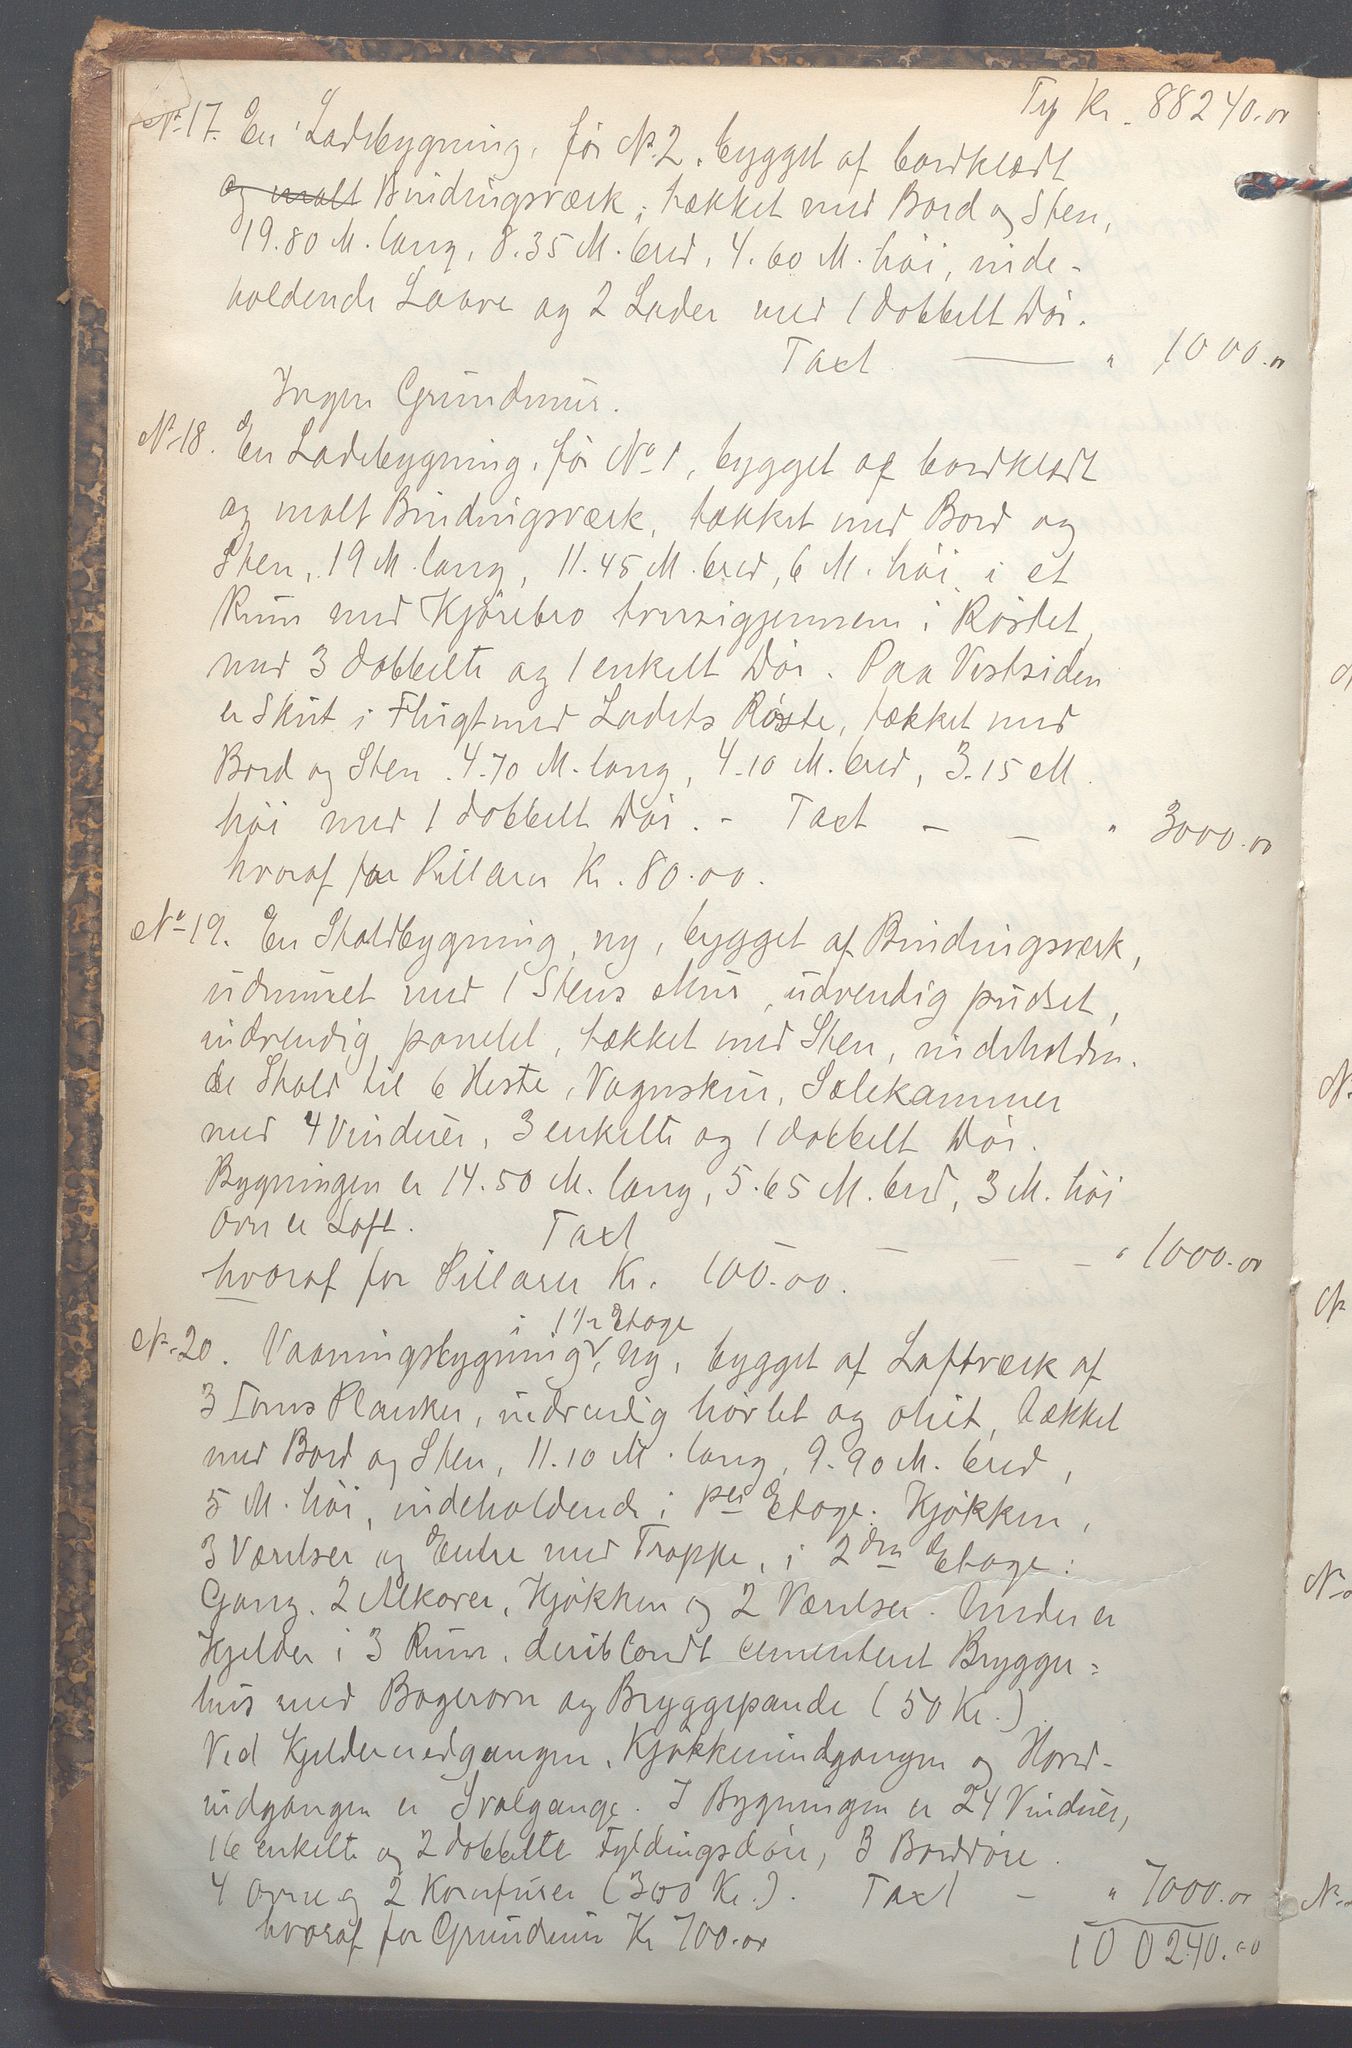 Trp Kr. 88240.00
No 17. En Ladebygning, før No 2, bygget af bordklædt
og malt Bindingsværk, tækket med Bord og Sten,
19.80 M. lang, 8.35 M. bred, 4.60 M. høi, inde-
holdende Laave og 2 Lader med 1 dobbelt Dør.
Taxt — " 1000.00
Ingen Grundmur.
No 18. En Ladebygning, før No 1, bygget af bordklædt
og malt Bindingsværk, tækket med Bord og
Sten, 19 M. lang, 11.45 M. bred, 6 M. høi, i et
Rum med Kjørebro tversigjennem i Røstet,
med 3 dobbelte og 1 enkelt Dør. Paa Vestsiden
er Skut i Flugt med Ladets Røste, tækket med
Bord og Sten. 4.70 M. lang, 4.10 M. bred, 3.15 M.
høi med 1 dobbelt Dør. - Taxt - — " 3000.00
hvoraf for Pillarer Kr. 80.00.
No 19. En Staldbygning, ny, bygget af Bindingsværk,
udmuret med 1 Stens Mur, udvendig pudset,
indvendig panelet, tækket med Sten, indeholden-
de Stald til 6 Heste, Vognskur, Selekammer
med 4 Vinduer, 3 enkelte og 1 dobbelt Dør.
Bygningen er 14.50 M. lang, 5.65 M. bred, 3 M. høi
Over er Loft. Taxt — - — - " 1000.00
hvoraf for Pillarer Kr. 100.00.
i 1 1/2 Etage
No 20. Vaaningsbygning, ny, bygget af Laftværk af
3 Toms Planker, indvendig høvlet og oliet, tækket
med Bord og Sten, 11.10 M. lang, 9.90 M. bred,
5 M. høi, indeholdende i 1ste Etage: Kjøkken,
3 Værelser og Entre med Trappe, i 2den Etage:
Gang, 2 Alkover, Kjøkken og 2 Værelser. Under er
Kjelder i 3 Rum, deriblandt cementeret Brygger=
hus med Bagerovn og Bryggepande (50 Kr.)
Ved Kjeldernedgangen, Kjøkkenindgangen og Hoved-
indgangen er Svalgange. I Bygningen er 24 Vinduer,
16 enkelte og 2 dobbelte Fyldingsdøre, 3 Borddøre.
4 Ovne og 2 Komfurer (300 Kr.). Taxt - " 7000.00
hvoraf for Grundmur Kr 700.00
100240.00